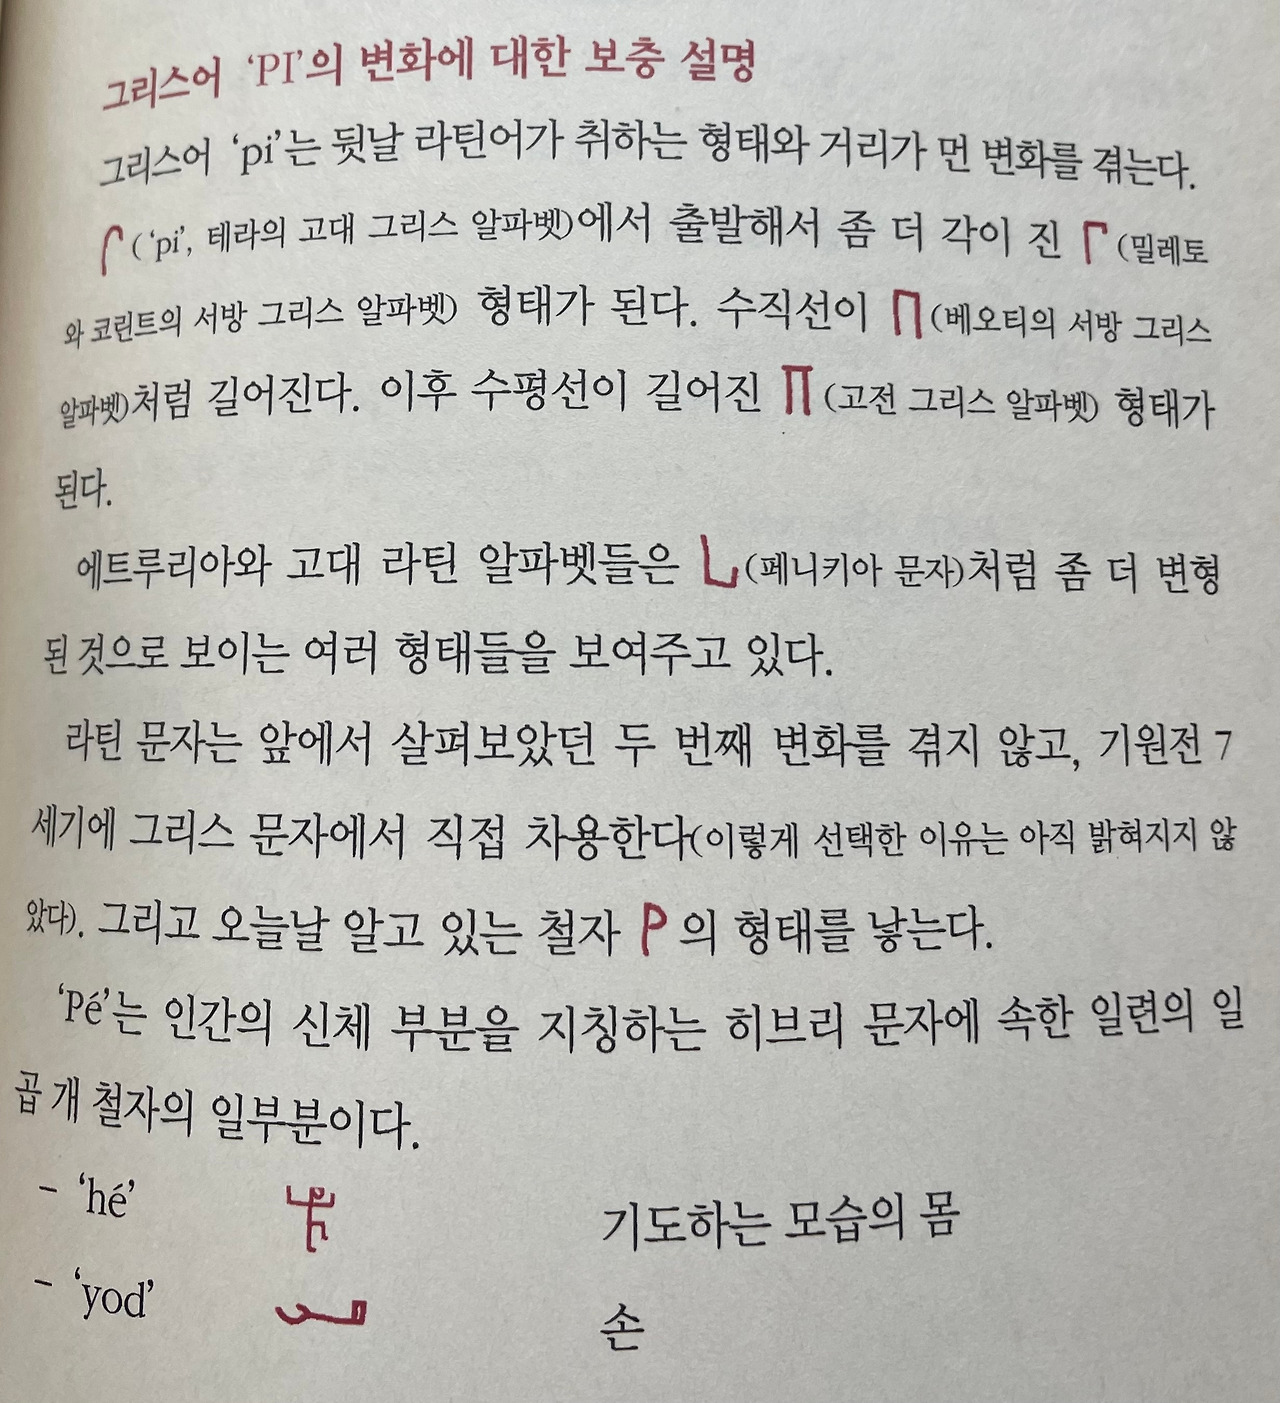 그리스어 ‘PI’의 변화에 대한 보충 설명
그리스어 ‘pi’는 뒷날 라틴어가 취하는 형태와 거리가 먼 변화를 겪는다.
(‘pi’, 테라의 고대 그리스 알파벳)에서 출발해서 좀 더 각이 진 Γ (밀레토
와 코린트의 서방 그리스 알파벳) 형태가 된다. 수직선이 Π (베오티의 서방 그리스
알파벳)처럼 길어진다. 이후 수평선이 길어진 Π (고전 그리스 알파벳) 형태가
된다.
에트루리아와 고대 라틴 알파벳들은 (페니키아 문자)처럼 좀 더 변형
된 것으로 보이는 여러 형태들을 보여주고 있다.
라틴 문자는 앞에서 살펴보았던 두 번째 변화를 겪지 않고, 기원전 7
세기에 그리스 문자에서 직접 차용한다(이렇게 선택한 이유는 아직 밝혀지지 않
았다). 그리고 오늘날 알고 있는 철자 P 의 형태를 낳는다.
‘Pé’는 인간의 신체 부분을 지칭하는 히브리 문자에 속한 일련의 일
곱 개 철자의 일부분이다.
– ‘hé’ 기도하는 모습의 몸
– ‘yod’ 손